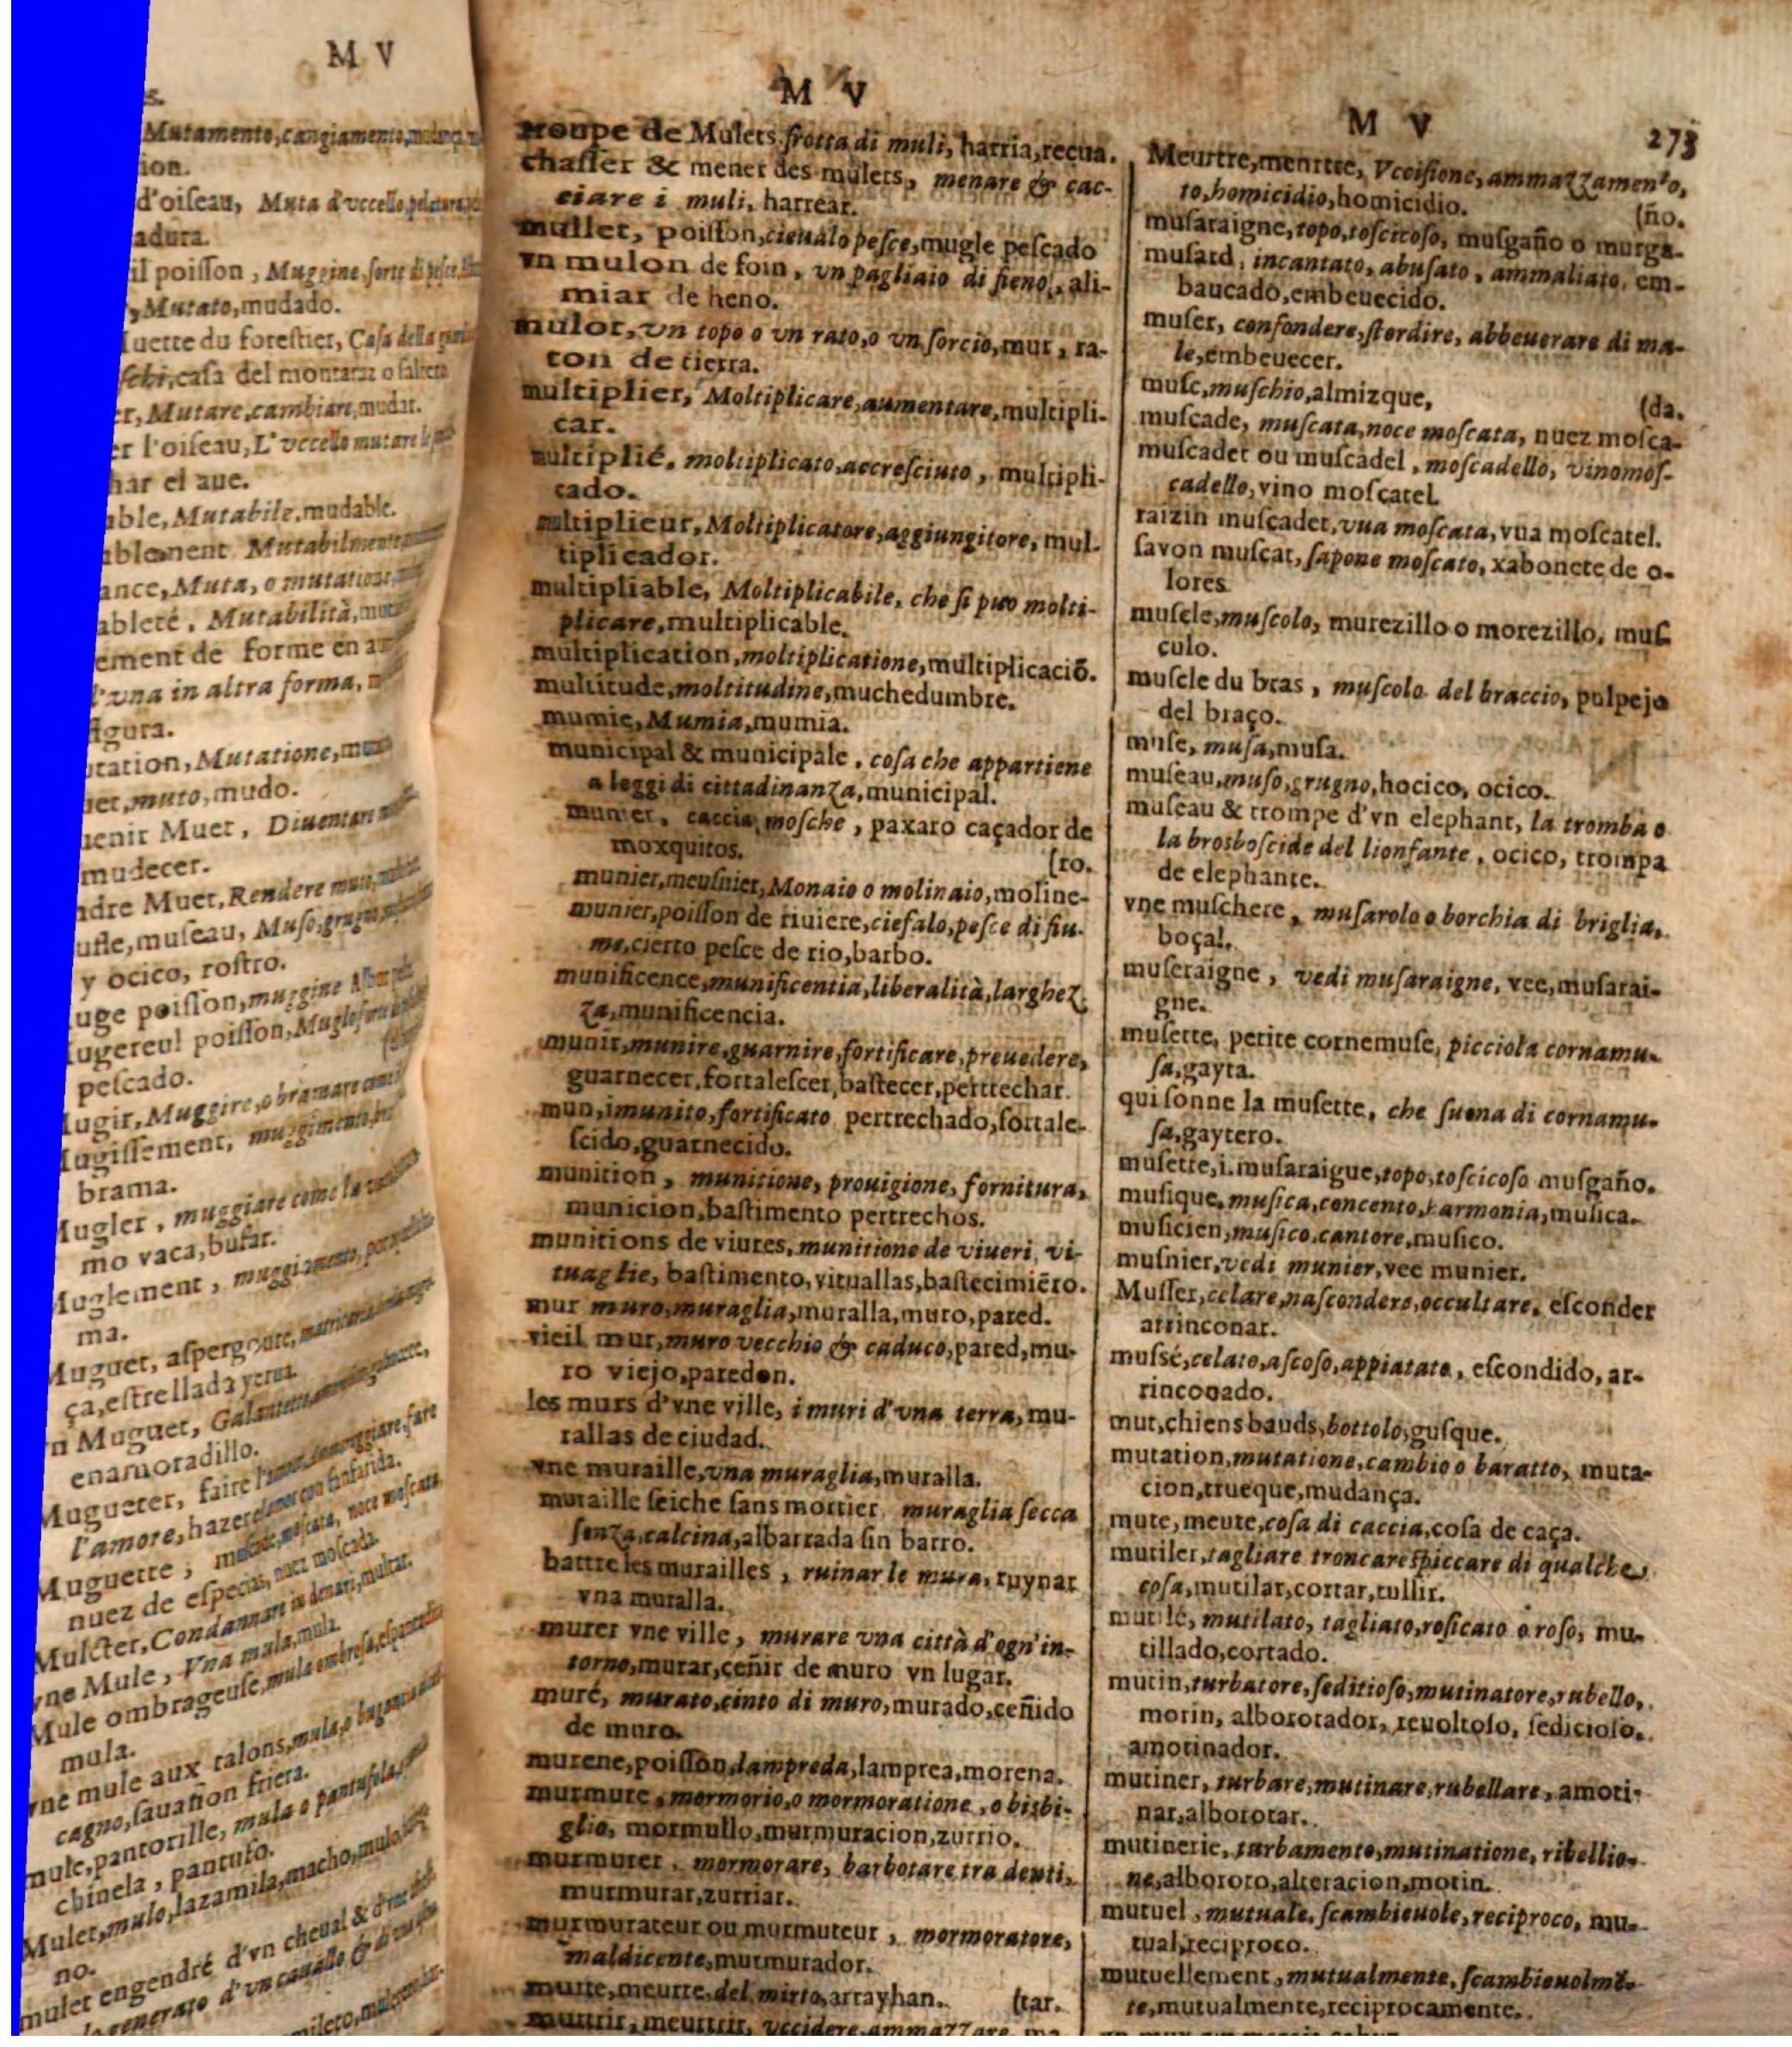 M V
s.
Mutamento,cangiamento,
ion.
d'oiſeau, Muta d'vccello
adura.
il poiſſon, Muggine,ſorte di peſce,
,Mutato,mudado.
uette du foreſtier, Caſa della
caſa del montaraz o
er, Mutare,cambiare,mudar.
er l'oiſeau,L'vccello mutare
har el aue.
able,Mutabile,mudable.
ablement Mutabilmente,
ance,Muta, o mutatione,
ableté, Mutabilità,
ement de forme en
l'vna in altra forma,
figura.
utation,Mutatione,
uet,muto,mudo.
uenir Muet, Diuentare
mudecer.
ndre Muet,Rendere muto,
ufle,muſeau, Muſo,grugno,
y ocico, roſtro.
uge poiſſon,muggine
ugereul poiſſon,
peſcado.
ugir,Muggire,o bramare
ugiſſement, muggimento,
brama.
Mugler, muggiare come la
mo vaca,bufar.
Muglement, muggiamento,
ma.
Muguet, aſpergoute,
ça,eſtrellada yerua.
n Muguet, Galante
enamoradillo.
Mugueter, faire l'amour, fare
l'amore,hazer
Muguette, noce moſcata
nuez de eſpecias, nuez moſcada.
Mulcter,Condannare in denari,multar.
vne Mule, Vna mula,mula.
Mule ombrageuſe,mula ombroſa,
mula.
vne mule aux talons,mula,o
cagno,ſauañon friera.
mule,pantoffle, mula o pantufola,
chinela, pantufo.
Mulet,mulo,lazamila,macho,mulo,
no.
mulet engendré d'vn cheual &
generato d'vn cauallo &
M V
troupe de Mulets frotta di muli, harria,recua.
chaſſer & mener des mulets, menare & cac-
ciare i muli, harrear.
mullet, poiſſon,cieualo peſce,mugle peſcado
vn mulon de foin, vn pagliaio di fieno, ali-
miar de heno.
mulot,vn topo o vn rato,o vn ſorcio,mur, ra-
ton de tierra.
multiplier, Moltiplicare,aumentare,multipli-
car.
multiplié, moltiplicato,accreſciuto, multipli-
cado.
multiplieur, Moltiplicatore,aggiungitore, mul-
tiplicador.
multipliable, Moltiplicabile, che ſi puo molti-
plicare,multiplicable.
multiplication,moltiplicatione,multiplicaciõ.
multitude,moltitudine,muchedumbre.
mumie,Mumia,mumia.
municipal & municipale, coſa che appartiene
a leggi di cittadinanza,municipal.
munier, caccia moſche, paxaro caçador de
moxquitos. (ro.
munier,meuſnier,Monaio o molinaio,moline-
munier,poiſſon de riuiere,ciefalo,peſce di fiu-
me,cierto peſce de rio,barbo.
munificence,munificentia,liberalità,larghez-
za,munificencia.
munir,munire,guarnire,fortificare,preuedere,
guarnecer,fortaleſcer,baſtecer,pertrechar.
mun,imunito,fortificato pertrechado,fortale-
ſcido,guarnecido.
munition, munitione, prouigione, fornitura,
municion,baſtimento pertrechos.
munitions de viures,munitione de viueri, vi-
tuaglie, baſtimento,vituallas,baſtecimiẽto.
mur muro,muraglia,muralla,muro,pared.
vieil mur,muro vecchio & caduco,pared,mu-
ro viejo,paredon.
les murs d'vne ville, i muri d'vna terra,mu-
rallas de ciudad.
vne muraille,vna muraglia,muralla.
muraille ſeiche ſans mortier, muraglia ſecca
ſenza calcina,albarrada ſin barro.
battre les murailles, ruinar le mura, ruynar
vna muralla.
murer vne ville, murare vna città d'ogn'in-
torno,murar,ceñir de muro vn lugar.
muré, murato,cinto di muro,murado,ceñido
de muro.
murene,poiſſon,lampreda,lamprea,morena.
murmure,mormorio,o mormoratione, o bisbi-
glio, mormullo,murmuracion,zurrio.
murmurer, mormorare, barbotare tra denti,
murmurar,zurriar.
murmurateur ou murmureur, mormoratore,
maldicente,murmurador.
murte,meurte,del mirto,arrayhan. (tar.
murtrir,meurtrir,vccidere,ammazzare,ma-
M V 273
Meurtre,menrtre, Vcciſione,ammazzamen'o,
to,homicidio,homicidio. (ño.
muſaraigne,topo,toſcicoſo, muſgaño o murga-
muſard, incantato, abuſato, ammaliato, em-
baucado,embeuecido.
muſer, confondere,ſtordire, abbeuerare di ma-
le,embeuecer.
muſc,muſchio,almizque, (da.
muſcade, muſcata,noce moſcata, nuez moſca-
muſcadet ou muſcadel, moſcadello, vinomoſ-
cadello,vino moſcatel.
raizin muſcadet,vua moſcata,vua moſcatel.
ſavon muſcat,ſapone moſcato,xabonete de o-
lores
muſcle,muſcolo, murezillo o morezillo, muſ-
culo.
muſcle du bras, muſcolo del braccio, pulpejo
del braço.
muſe, muſa,muſa.
muſeau,muſo,grugno,hocico, ocico.
muſeau & trompe d'vn elephant, la tromba o
la brosboſcide del lionfante, ocico, trompa
de elephante.
vne muſchere, muſarolo o borchia di briglia,
boçal.
muſeraigne, vedi muſaraigne, vee,muſarai-
gne.
muſette, petite cornemuſe, picciola cornamu-
ſa,gayta.
qui ſonne la muſette, che ſuona di cornamu-
ſa,gaytero.
muſette,i.muſaraigue,topo,toſcicoſo muſgaño.
muſique,muſica,concento,harmonia,muſica.
muſicien,muſico,cantore,muſico.
muſnier,vedi munier,vee munier.
Muſſer,celare,naſcondere,occultare, eſconder
arrinconar.
muſsé,celato,aſcoſo,appiatato, eſcondido, ar-
rinconado.
mut,chiens bauds,bottolo,guſque.
mutation,mutatione,cambio o baratto, muta-
cion,trueque,mudança.
mute, meute,coſa di caccia,coſa de caça.
mutiler,tagliare troncare ſpiccare di qualche
coſa,mutilar,cortar,tullir.
mutilé, mutilato, tagliato,roſicato o roſo, mu-
tillado,cortado.
mutin,turbatore,ſeditioſo,mutinatore,rubello,
motin, albororador, reuoltoſo, ſedicioſo,
amotinador.
mutiner, turbare,mutinare,rubellare, amoti-
nar,alborotar.
mutinerie, turbamento,mutinatione, ribellio-
ne,albororo,alteracion,motin.
mutuel, mutuale, ſcambieuole,reciproco, mu-
tual,reciproco.
mutuellement, mutualmente, ſcambieuolmẽ-
te,mutualmente,reciprocamente.